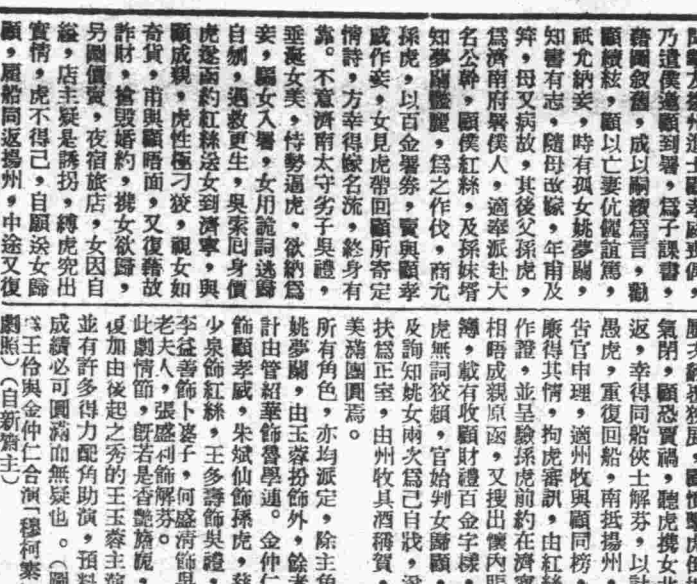 乃遣僕邀顧到署，為子課書，
藉圖敘舊，成以嗣續為言，勸
顧續絃，顧以亡妻伉儷誼篤，
祇允納妾，時有孤女姚夢蘭，
知書有志，隨母改嫁，年甫及
笄，母又病故，其後父孫虎，
為濟南府署僕人，適奉派赴大
名公幹，顧僕紅絲，及孫妹壻
知夢蘭豔麗，為之作伐，商允
孫虎，以百金署劵，賣與顧孝
威作妾，女見虎帶回顧所寄定
情詩，方幸得嫁名流，終身有
靠。不意濟南太守劣子吳禮，
垂涎女美，恃勢逼虎，欲納為
妾，騙女入署，女用詭詞逃歸
自刎，遇救更生，吳索回身價
虎遂函約紅絲送女到濟寧，與
顧成親，虎性極刁狡，視女如
奇貨，甫與顧晤面，又復藉故
詐財，搶毀婚約，攜女欲歸，
另圖價賣，夜宿旅店，女因自
縊，店主疑是誘拐，縛虎究出
實情，虎不得已，自願送女歸
顧，雇船同返揚州，中途又復
氣閉，顧恐賈禍，聽虎攜女北
返，幸得同船俠士解芬，以計
愚虎，重復回船，南抵揚州
告官申理，適州牧與顧同榜，
廉得其情，拘虎審訊，由紅絲
作證，並呈驗孫虎前約在濟寧
相晤成親原函，又搜出懷內賬
簿，載有收顧財禮百金字樣，
虎無詞狡賴，官始判女歸顧，
及詢知姚女兩次為己自戕，
扶為正室，由州牧具酒稱賀，
美滿團圓焉。
所有角色，亦均派定，除主角
姚夢蘭，由玉蓉扮飾外，餘者
計由管紹華飾魯學連。金仲仁
飾顧孝威，朱斌仙飾孫虎，
少泉飾紅絲，王多壽飾吳禮，
李益善飾卜婆子，何盛清飾吳
老夫人，張盛利飾解芬。
此劇情節，旣若是香艷旖旎，
復加由後起之秀的王玉蓉主演
並有許多得力配角助演，預料
成績必可圓滿而無疑也。（圖
為王伶與金仲仁合演「穆柯寨」
劇照）（自新齋主）